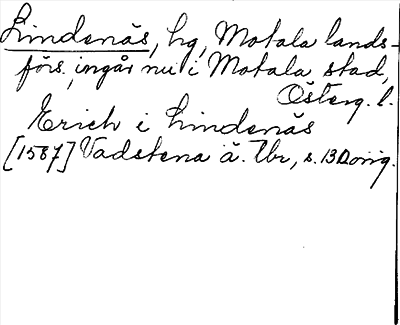 Lindenäs, hg, Motala lands-
förs., ingår nu i Motala stad,
Österg. l.
Erich i Lindenäs
[1587] Vadstena ä. Tbr, s. 13 D orig.